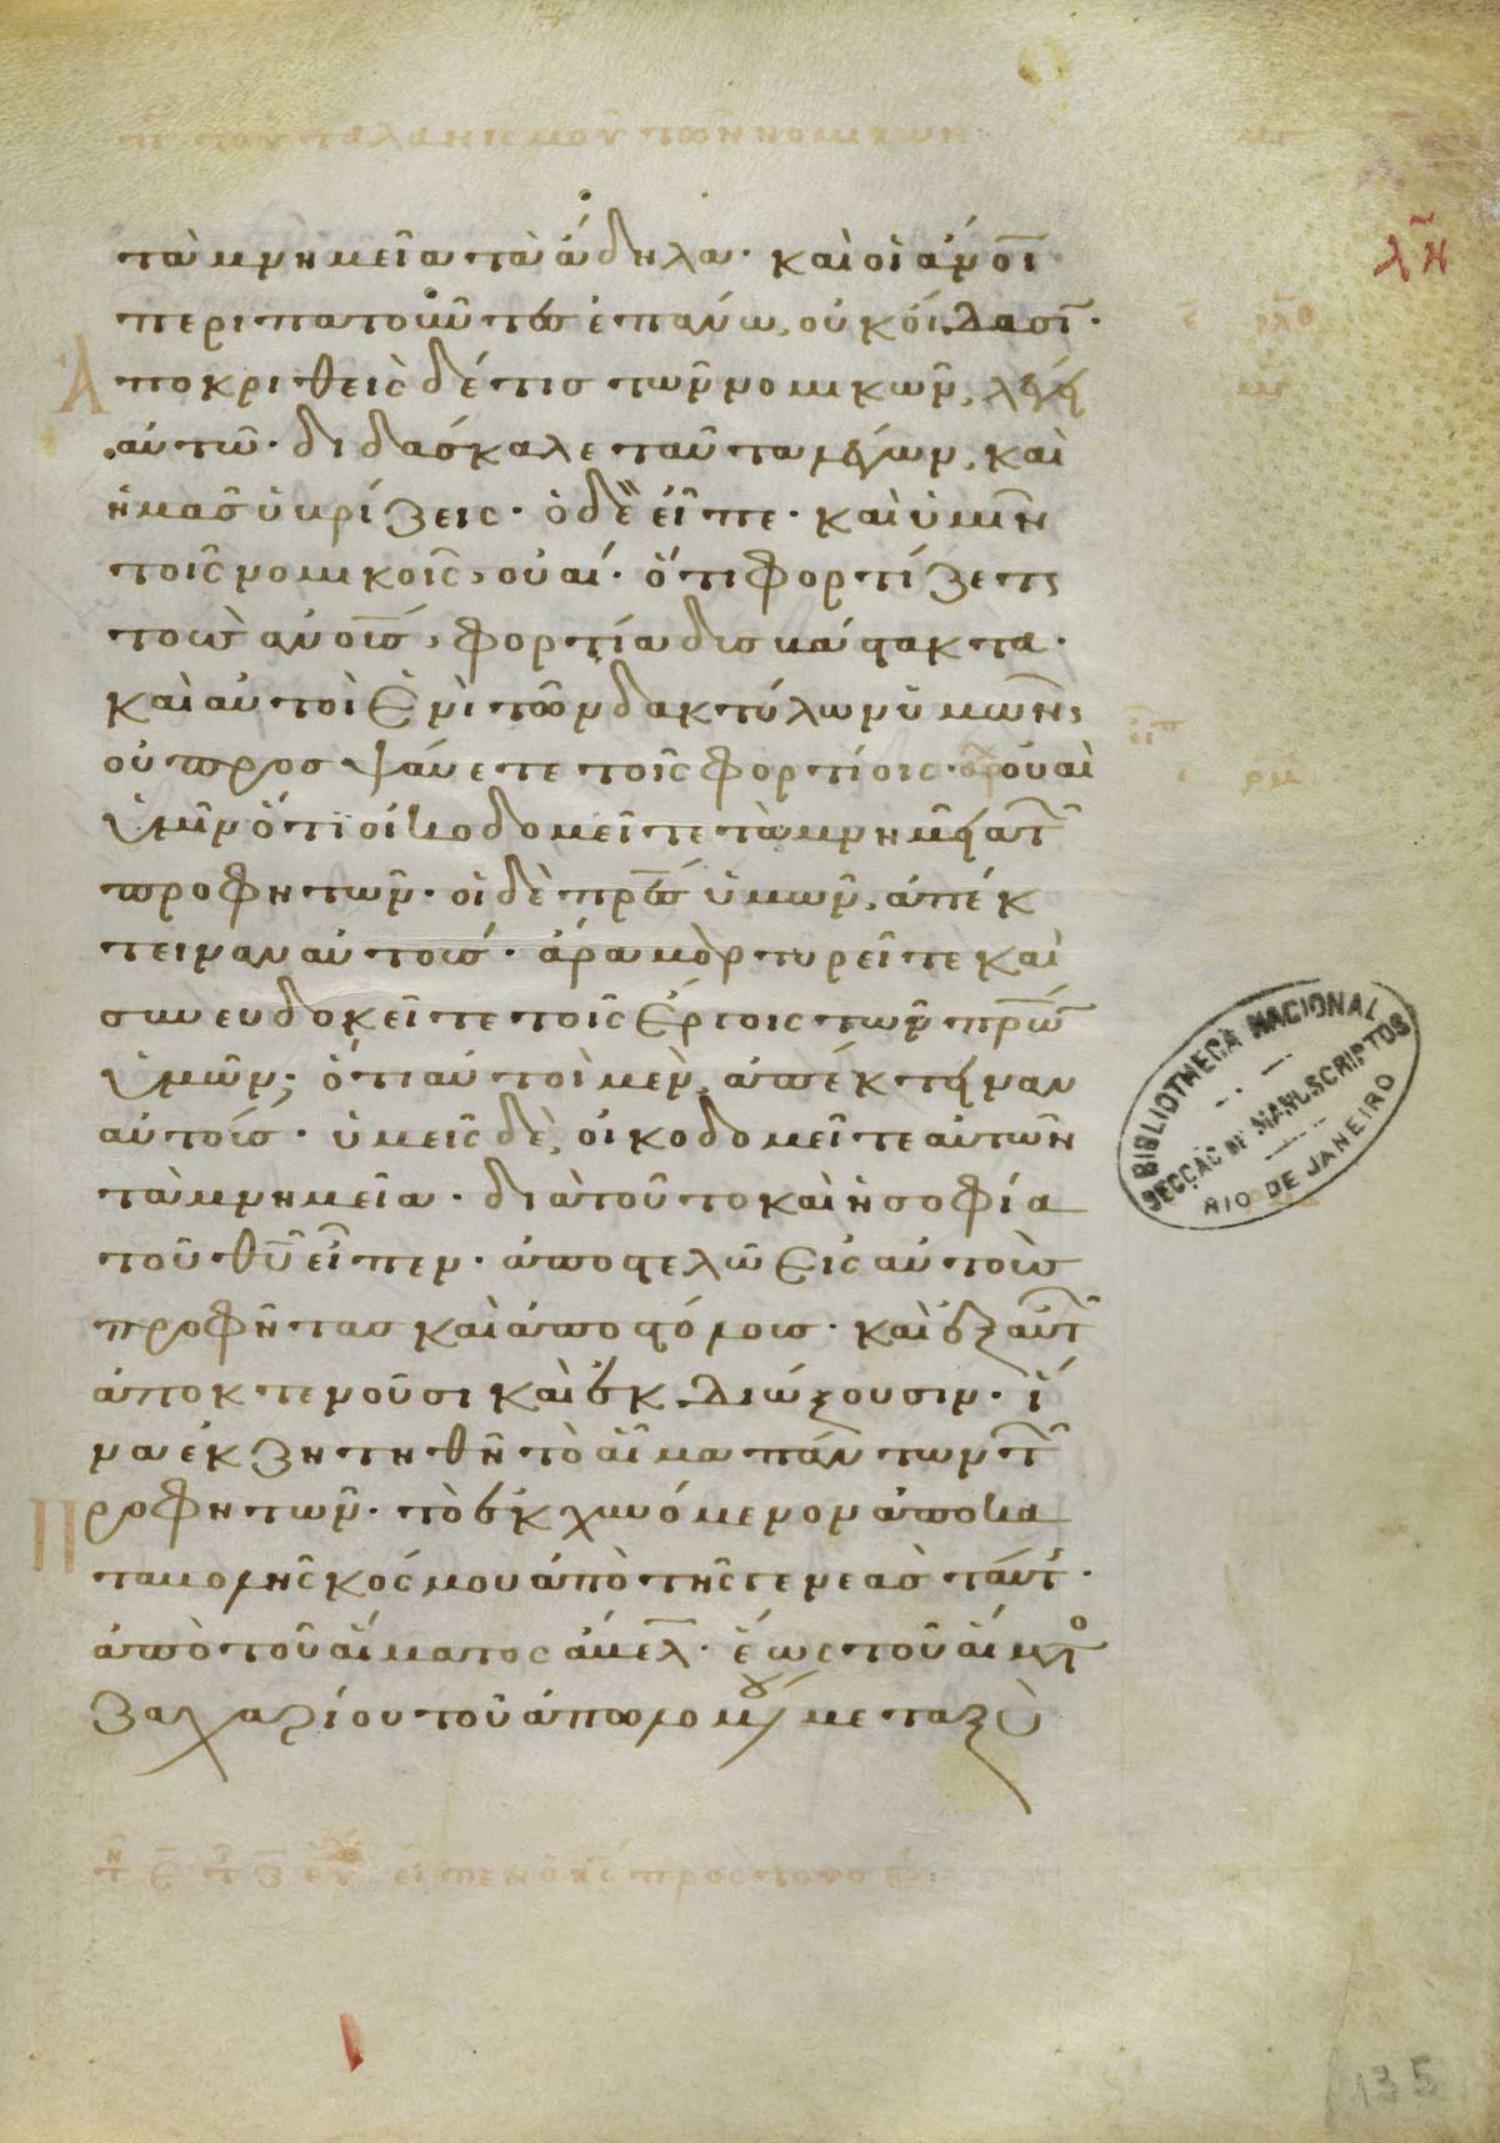 τὰ μνημεῖα τὰ ἄδηλα· καὶ οἱ ἄνοι
περιπατοῦντες ἐπάνω, οὐκ οἴδασι·
Ἀποκριθεὶς δέ τις τῶν νομικῶν, λέγει
αὐτῶ· διδάσκαλε ταῦτα λέγων, καὶ
ἡμᾶς ὑβρίζεις· ὁ δὲ εἶπε· καὶ ὑμῖν
τοῖς νομικοῖς, οὐαί· ὅτι φορτίζετε
τοὺς ἀνους, φορτία δυσβάστακτα·
καὶ αὐτοὶ ἑνὶ τῶν δακτύλων ὑμῶν,
οὐ προσψαύετε τοῖς φορτίοις· οὐαὶ
ὑμῖν ὅτι οἰκοδομεῖτε τὰ μνημεῖα τῶν
προφητῶν· οἱ δὲ πρες ὑμῶν, ἀπέκ
τειναν αὐτούς· ἄρα μαρτυρεῖτε καὶ
συνευδοκεῖτε τοῖς ἔργοις τῶν πρων
ὑμῶν· ὅτι αὐτοὶ μὲν, ἀπέκτειναν
αὐτούς· ὑμεῖς δὲ, οἰκοδομεῖτε αὐτῶν
τὰ μνημεῖα· διὰ τοῦτο καὶ ἡ σοφία
τοῦ θυ εἶπεν· ἀποστελῶ εἰς αὐτοὺς
προφήτας καὶ ἀποστόλους· καὶ ἐξ αὐτῶν
ἀποκτενοῦσι καὶ ἐκδιώξουσιν· ἵ
να ἐκζητηθῆ τὸ αἷμα πάντων τῶν π
ροφητῶν· τὸ ἐκχυνόμενον ἀπὸ κα
ταβολῆς κόσμου ἀπὸ τῆς γενεᾶς ταύτης·
ἀπὸ τοῦ αἵματος ἄβελ· ἕως τοῦ αἵματος
ζαχαρίου τοῦ ἀπολομένου μεταξὺ
λη
ρλθ
ρμ
BIBLIOTHECA NACIONAL
SECÇÃO DE MANUSCRIPTOS
RIO DE JANEIRO
135